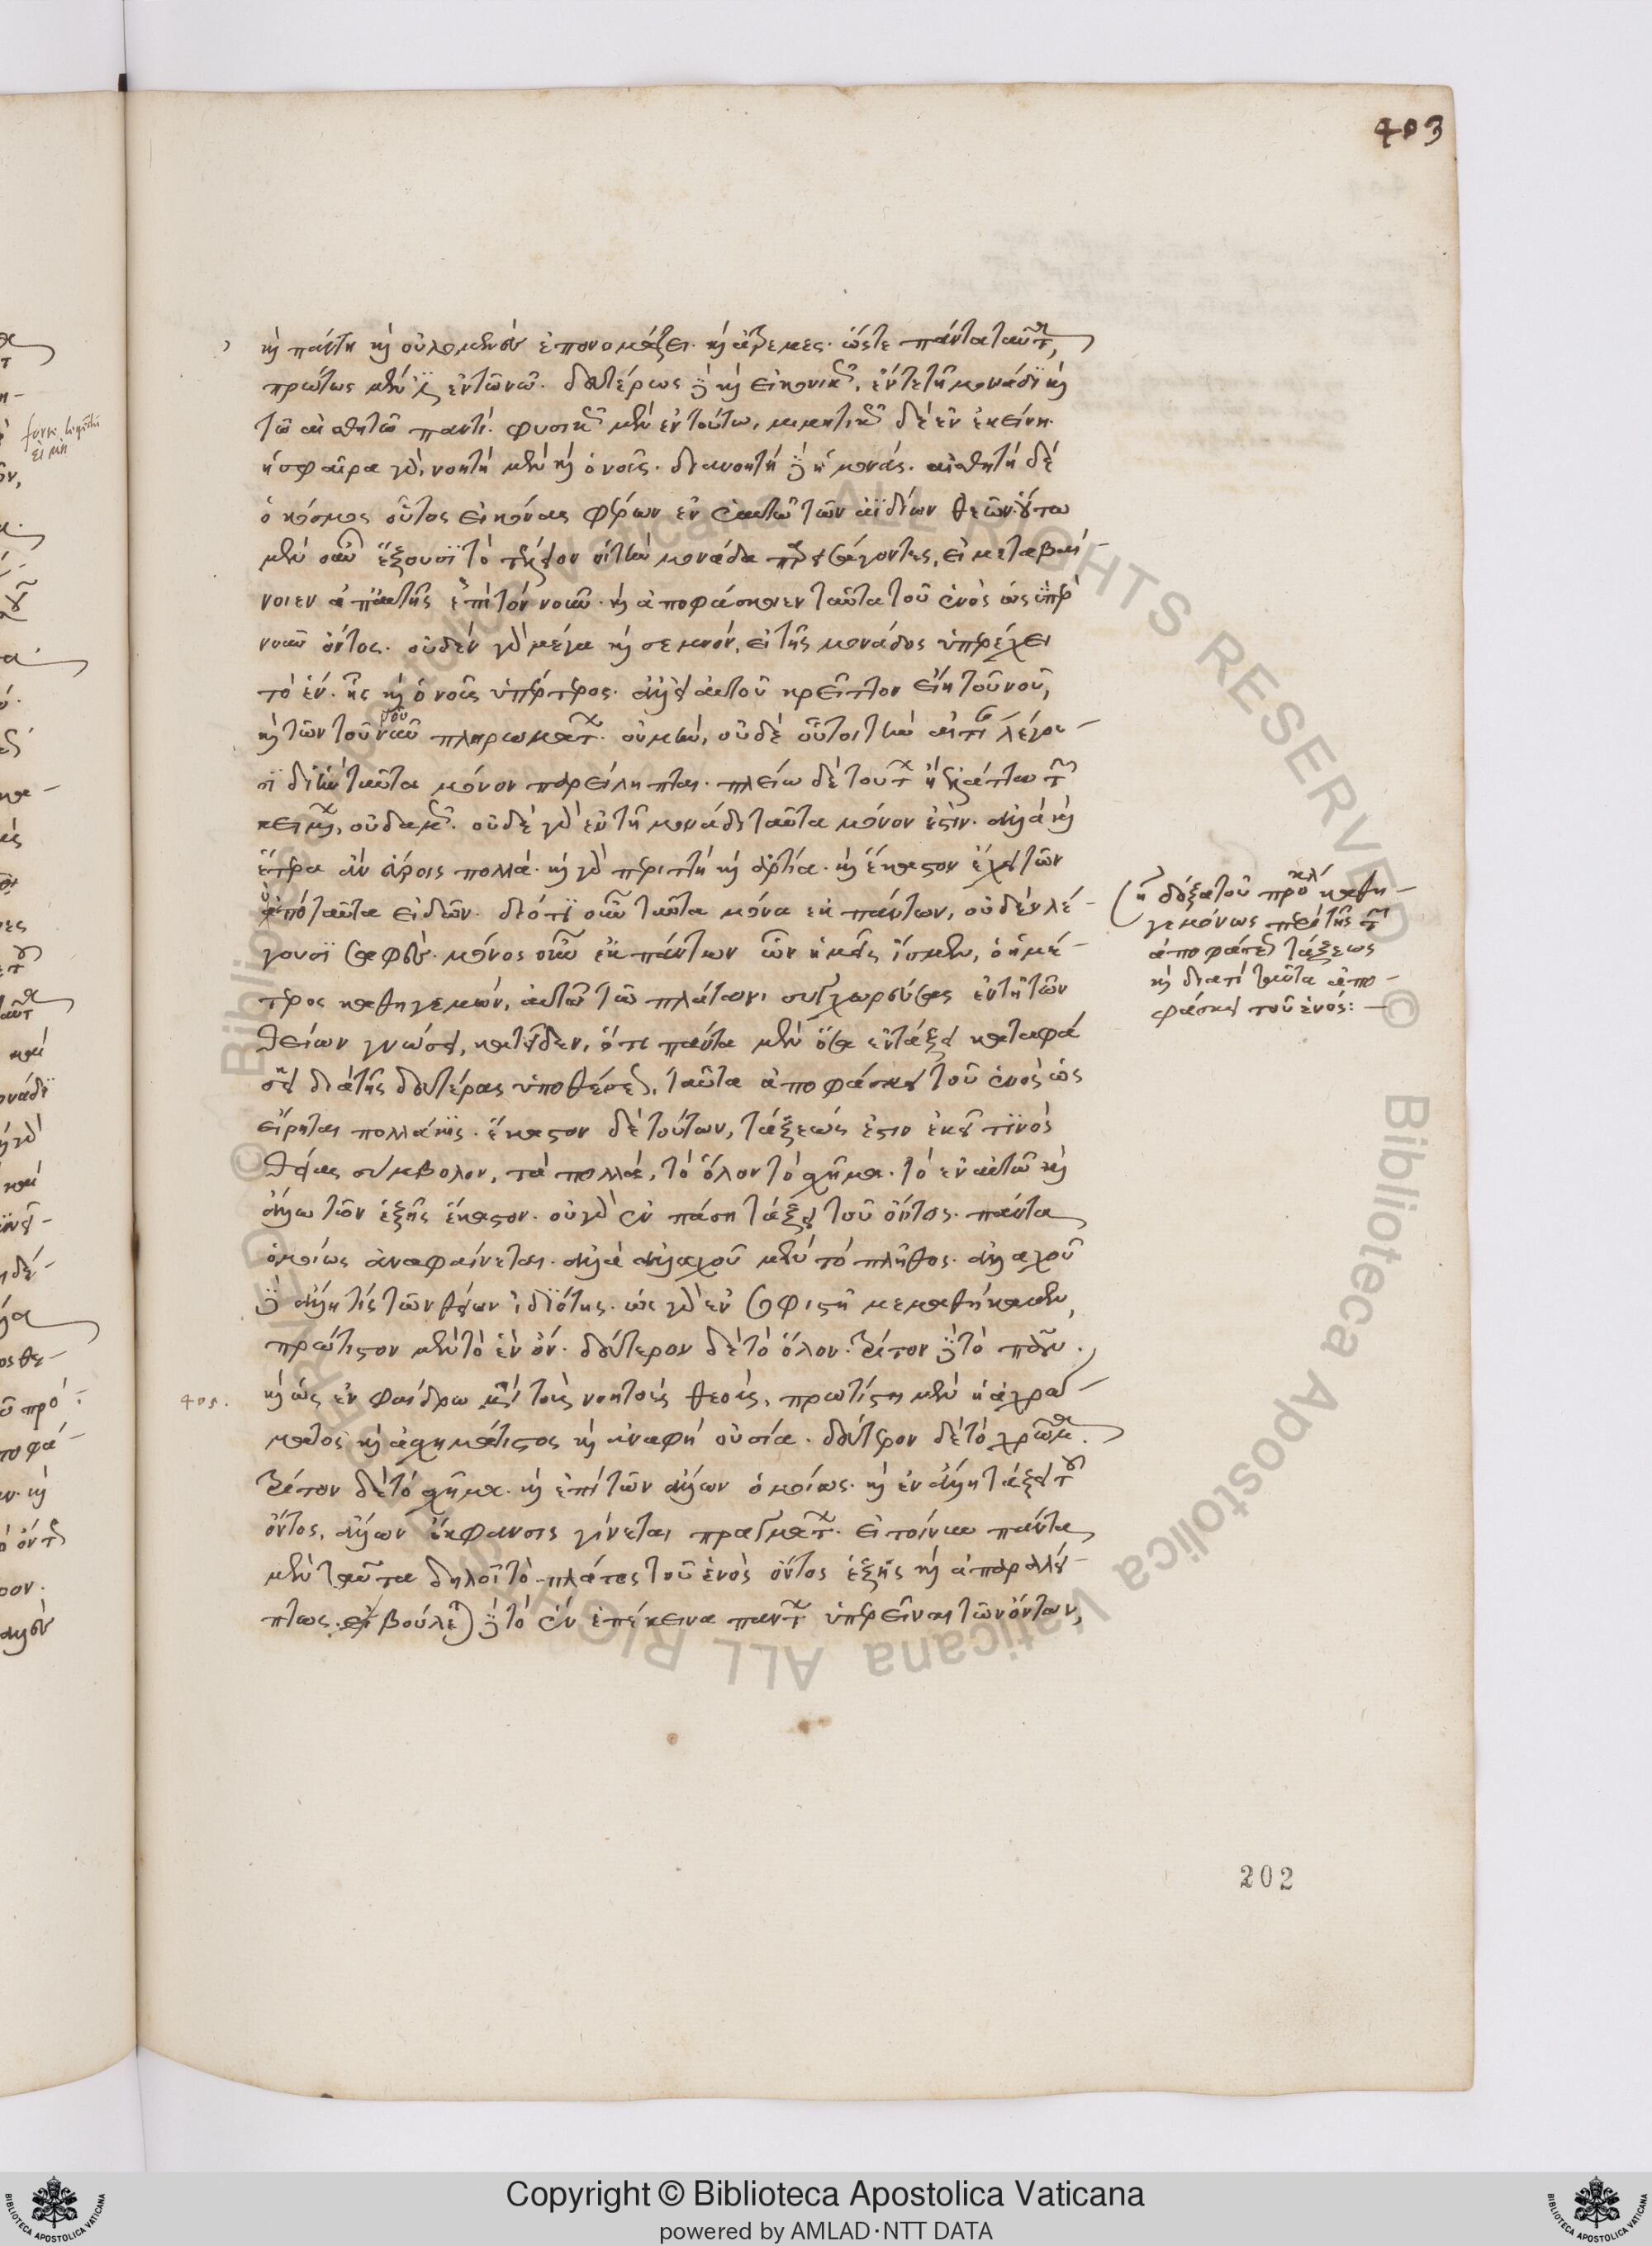 403
καὶ πάντη καὶ οὐλομελὲς ἐπονομάζει. καὶ ἀτρεμές. ὥστε πάντα ταῦτα,
πρώτως μέν ἐστιν ἐν τῷ νῷ. δευτέρως δὲ καὶ εἰκονικῶς, ἔν τε τῇ μονάδι καὶ
τῷ αἰσθητῷ παντί. φυσικῶς μὲν ἐν τούτω, μιμητικῶς δὲ ἐν ἐκείνη.
ἡ σφαῖρα γὰρ, νοητὴ μὲν καὶ ὁ νοῦς. διανοητὴ δὲ ἡ μονάς. αἰσθητὴ δὲ
ὁ κόσμος οὗτος εἰκόνας φέρων ἐν ἑαυτῷ τῶν ἀϊδίων θεῶν. οὕτω
μὲν οὖν ἕξουσι τὸ τέλειον οἱ τὴν μονάδα προσάγοντες, εἰ μεταβαί-
νοιεν ἀπ' αὐτῆς ἐπὶ τὸν νοῦν. καὶ ἀποφάσκοιεν ταῦτα τοῦ ἑνὸς ὡς ὑπὲρ
νοῦν ὄντος. οὐδὲν γὰρ μέγα καὶ σεμνόν, εἰ τῆς μονάδος ὑπερέχει
τὸ ἕν. ἧς καὶ ὁ νοῦς ὑπέρτερος. ἀλλ' εἰ αὐτοῦ κρεῖττον εἴη τοῦ νοῦ,
καὶ τῶν τοῦ νοῦ πληρωμάτων. οὐ μὴν, οὐδὲ οὗτοι τὴν αἰτίαν λέγου-
σι δι' ἣν ταῦτα μόνον παρείληπται. πλείω δὲ τούτων ἢ ἐλάττω τῶν
κειμένων, οὐδαμῶς. οὐδὲ γὰρ ἐν τῇ μονάδι ταῦτα μόνον ἐστίν. ἀλλὰ καὶ
ἕτερα ἂν εὕροις πολλά. καὶ γὰρ περιττὴ καὶ ἀρτία. καὶ ἕκαστον ἔχει τῶν
ὑπὸ ταῦτα εἰδῶν. διότι οὖν ταῦτα μόνα ἐκ πάντων, οὐδὲν λέ-
γουσι σαφές. μόνος οὖν ἐκ πάντων ὧν ἡμεῖς ἴσμεν, ὁ ἡμέ-
τερος καθηγεμών, αὐτῷ τῷ πλάτωνι συγχορεύσας ἐν τῇ τῶν
θείων γνώσει, κατεῖδεν, ὅτι πάντα μὲν ὅσα ἐν τάξει καταφά
σκει διὰ τῆς δευτέρας ὑποθέσεως, ταῦτα ἀποφάσκει τοῦ ἑνὸς ὡς
εἴρηται πολλάκις. ἕκαστον δὲ τούτων, τάξεώς ἐστιν ἐκεῖ τινὸς
θείας σύμβολον, τὰ πολλά, τὸ ὅλον τὸ σχῆμα. τὸ ἐν αὑτῷ καὶ
ἄλλω τῶν ἑξῆς ἕκαστον. οὐ γὰρ ἐν πάση τάξει τοῦ ὄντος. πάντα
ὁμοίως ἀναφαίνεται. ἀλλὰ ἀλλαχοῦ μὲν τὸ πλῆθος. ἀλλαχοῦ
δὲ ἄλλη τὶς τῶν θείων ἰδιότης. ὡς γὰρ ἐν σοφιστῇ μεμαθήκαμεν,
πρώτιστον μὲν τὸ ἓν ὄν. δεύτερον δὲ τὸ ὅλον. τρίτον δὲ τὸ πᾶν.
405.
καὶ ὡς ἐν φαίδρω μετὰ τοὺς νοητοὺς θεοὺς, πρωτίστη μὲν ἡ ἀχρώ-
ματος καὶ ἀσχημάτιστος καὶ ἀναφὴ οὐσία. δεύτερον δὲ τὸ χρῶμα.
τρίτον δὲ τὸ σχῆμα. καὶ ἐπὶ τῶν ἄλλων ὁμοίως. καὶ ἐν ἄλλη τάξει τοῦ
ὄντος, ἄλλων ἔκφανσις γίνεται πραγμάτων. εἰ τοίνυν πάντα
μὲν ταῦτα δηλοῖ τὸ πλάτος τοῦ ἑνὸς ὄντος ἑξῆς καὶ ἀπαραλεί-
πτως. βούλεται δὲ τὸ ἓν ἐπέκεινα πάντων ὑπερεῖναι τῶν ὄντων,
ἡ δόξα τοῦ πρόκλου καθη-
γεμόνως περὶ τῆς τῶν
ἀποφάσεων τάξεως
καὶ διατί ταῦτα ἀπο-
φάσκει τοῦ ἑνός:
202
Copyright © Biblioteca Apostolica Vaticana
powered by AMLAD·NTT DATA